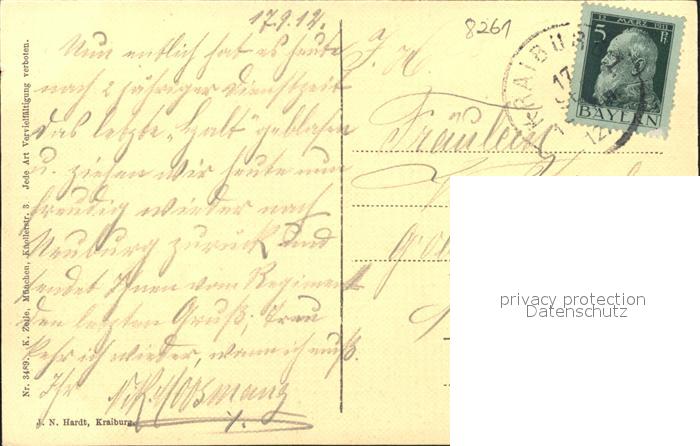 17.9.12.
8261
Nun entlich hat es heute
nach 2 jähriger Dienstzeit
das letzte „Halt“ geblasen
u. ziehen wir heute nun
freudig wieder nach
Neuburg zurück und
sendet Ihnen vom Regiment
den letzten Gruß, Treu
kehr ich wieder, wenn ich muß.
Ihr
F. H.
Fräulein
12. MÄRZ 1911
5 Pf
BAYERN
KRAIBURG
17
Nr. 3489. K. Zelle, München, Knollerstr. 3. Jede Art Vervielfältigung verboten.
J. N. Hardt, Kraiburg.
privacy protection
Datenschutz